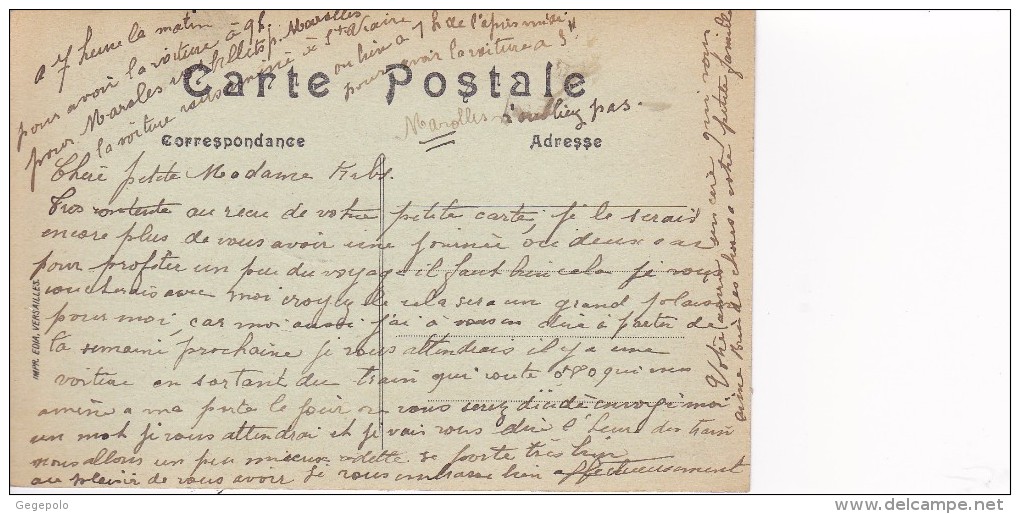 a 7 heure la matin
pour avoir la voiture à 9h
pour Marolles billets p. Marolles
la voiture vous mène à Ste
ou bien a 1h de l'après midi
pour avoir la voiture a 3h
Carte Postale
Marolles n'oubliez pas.
Correspondance
Adresse
Cherè petite Madame
Tres contente au recu de votre petite carte, je le serais
encore plus de vous avoir une journée ou deux
pour profiter un peu du voyage il faut bien cela je vous
coucherais avec moi croyez le cela sera un grand plaisir
pour moi, car moi aussi j'ai à vous en dire à partir de
la semaine prochaine je vous attendrais il y a une
voitiue en sortant du train qui coute 0f80 qui
amène a ma porte le jour ou vous serez décidé envoyé moi
un mot je vous attendrai et je vais vous dire l'heure des train
nous allons un peu mieux odette se porte très bien
au plaisir de vous avoir Je vous embrasse bien affectueusement
Votre amie sincère qui vous
aime bien des choses a votre petite famille
IMPR. EDIA, VERSAILLES.
Gegepolo
delcampe.net